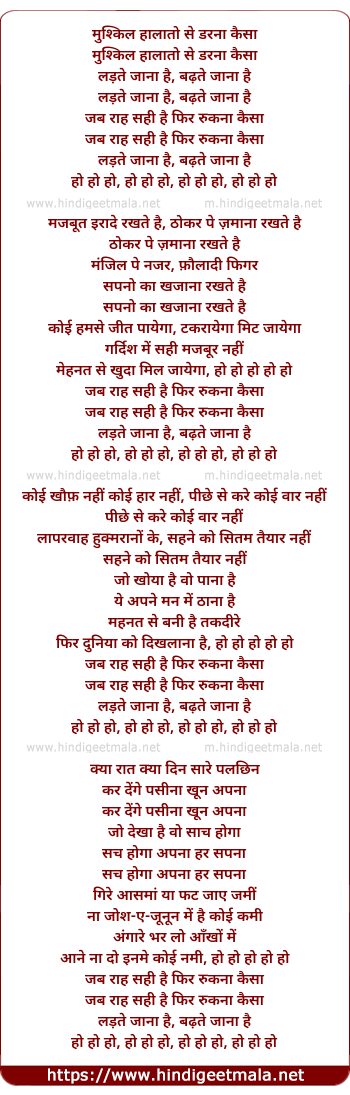 मुश्किल हालातो से डरना कैसा
मुश्किल हालातो से डरना कैसा
लड़ते जाना है, बढ़ते जाना है
लड़ते जाना है, बढ़ते जाना है
जब राह सही है फिर रुकना कैसा
जब राह सही है फिर रुकना कैसा
लड़ते जाना है, बढ़ते जाना है
हो हो हो, हो हो हो, हो हो हो, हो हो हो
www.hindigeetmala.net m.hindigeetmala.net
मजबूत इरादे रखते है, ठोकर पे ज़माना रखते है
ठोकर पे ज़माना रखते है
मंजिल पे नजर, फ़ौलादी फिगर
सपनो का खजाना रखते है
सपनो का खजाना रखते है
कोई हमसे जीत पायेगा, टकरायेगा मिट जायेगा
गर्दिश में सही मजबूर नहीं
मेहनत से खुदा मिल जायेगा, हो हो हो हो हो
जब राह सही है फिर रुकना कैसा
जब राह सही है फिर रुकना कैसा
लड़ते जाना है, बढ़ते जाना है
हो हो हो, हो हो हो, हो हो हो, हो हो हो
www.hindigeetmala.net m.hindigeetmala.net
कोई खौफ़ नहीं कोई हार नहीं, पीछे से करे कोई वार नहीं
पीछे से करे कोई वार नहीं
लापरवाह हुक्मरानों के, सहने को सितम तैयार नहीं
सहने को सितम तैयार नहीं
जो खोया है वो पाना है
ये अपने मन में ठाना है
महनत से बनी है तकदीरे
फिर दुनिया को दिखलाना है, हो हो हो हो हो
जब राह सही है फिर रुकना कैसा
जब राह सही है फिर रुकना कैसा
लड़ते जाना है, बढ़ते जाना है
हो हो हो, हो हो हो, हो हो हो, हो हो हो
www.hindigeetmala.net m.hindigeetmala.net
क्या रात क्या दिन सारे पलछिन
कर देंगे पसीना खून अपना
कर देंगे पसीना खून अपना
जो देखा है वो साच होगा
सच होगा अपना हर सपना
सच होगा अपना हर सपना
गिरे आसमां या फट जाए जमीं
ना जोश-ए-जूनून में है कोई कमी
अंगारे भर लो आँखों में
आने ना दो इनमे कोई नमी, हो हो हो हो हो
जब राह सही है फिर रुकना कैसा
जब राह सही है फिर रुकना कैसा
लड़ते जाना है, बढ़ते जाना है
हो हो हो, हो हो हो, हो हो हो, हो हो हो
https://www.hindigeetmala.net